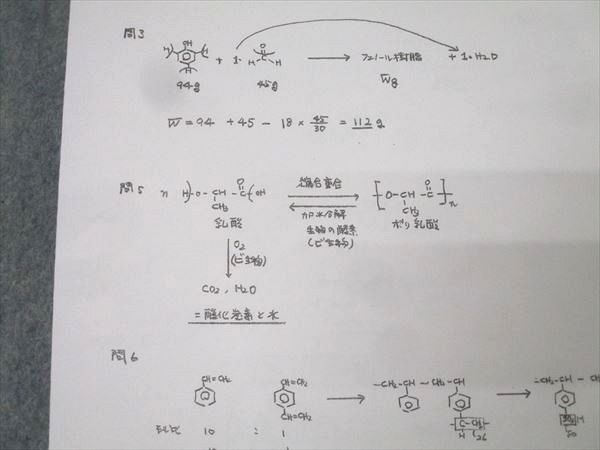 問3
OH
H H H + 1. H-C-H O → フェノール樹脂 + 1. H2O
94g 45g Wg
W = 94 + 45 - 18 × 45/30 = 112 g
問5 n H-O-CH-C-OH O CH3 縮合重合 [-O-CH-C-]n O CH3
乳酸 加水分解 ポリ乳酸
生物の酵素
(微生物)
O2
(微生物)
CO2, H2O
= 二酸化炭素と水
問6
CH=CH2 CH=CH2 → -CH2-CH-CH2-CH → -CH2-CH-CH
CH=CH2
モル比 10 : 1